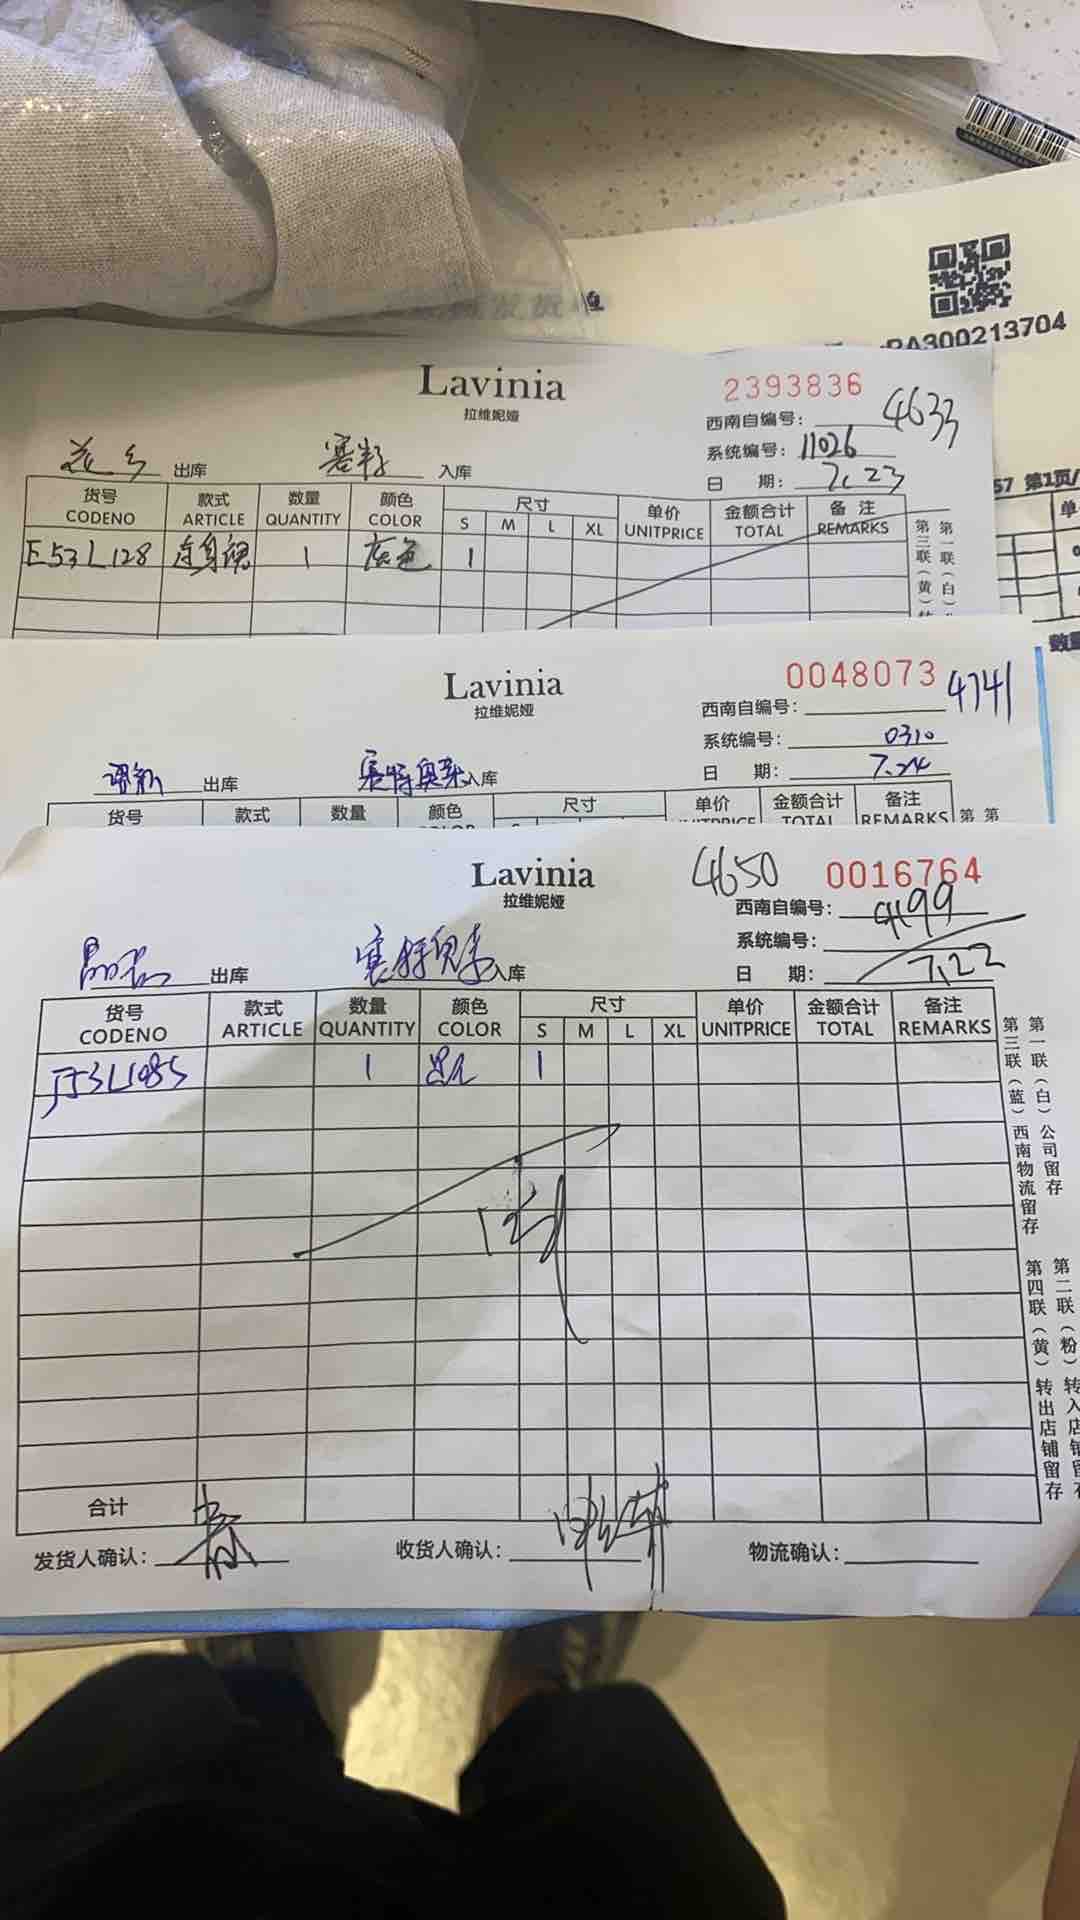 RA300213704
57 第1页/
Lavinia
拉维妮娅
2393836
4633
西南自编号:
系统编号: 11026
日 期: 7.23
花乡 出库 赛特 入库
货号 款式 数量 颜色 尺寸 单价 金额合计 备注
CODENO ARTICLE QUANTITY COLOR S M L XL UNITPRICE TOTAL REMARKS
E53L128 连身裙 1 灰色 1
第一联(白)
第三联(黄)
数量
Lavinia
拉维妮娅
0048073
4741
西南自编号:
系统编号: 0310
日 期: 7.24
出库 赛特奥莱 入库
货号 款式 数量 颜色 尺寸 单价 金额合计 备注
UNITPRICE TOTAL REMARKS
第 第
Lavinia
拉维妮娅
4650 0016764
西南自编号: 4199
系统编号:
日 期: 7.22
出库 赛特奥莱 入库
货号 款式 数量 颜色 尺寸 单价 金额合计 备注
CODENO ARTICLE QUANTITY COLOR S M L XL UNITPRICE TOTAL REMARKS
J53L1085 1 1
第一联(白)公司留存
第三联(蓝)西南物流留存
第二联(粉)转入店铺留存
第四联(黄)转出店铺留存
合计
发货人确认: 收货人确认: 物流确认: